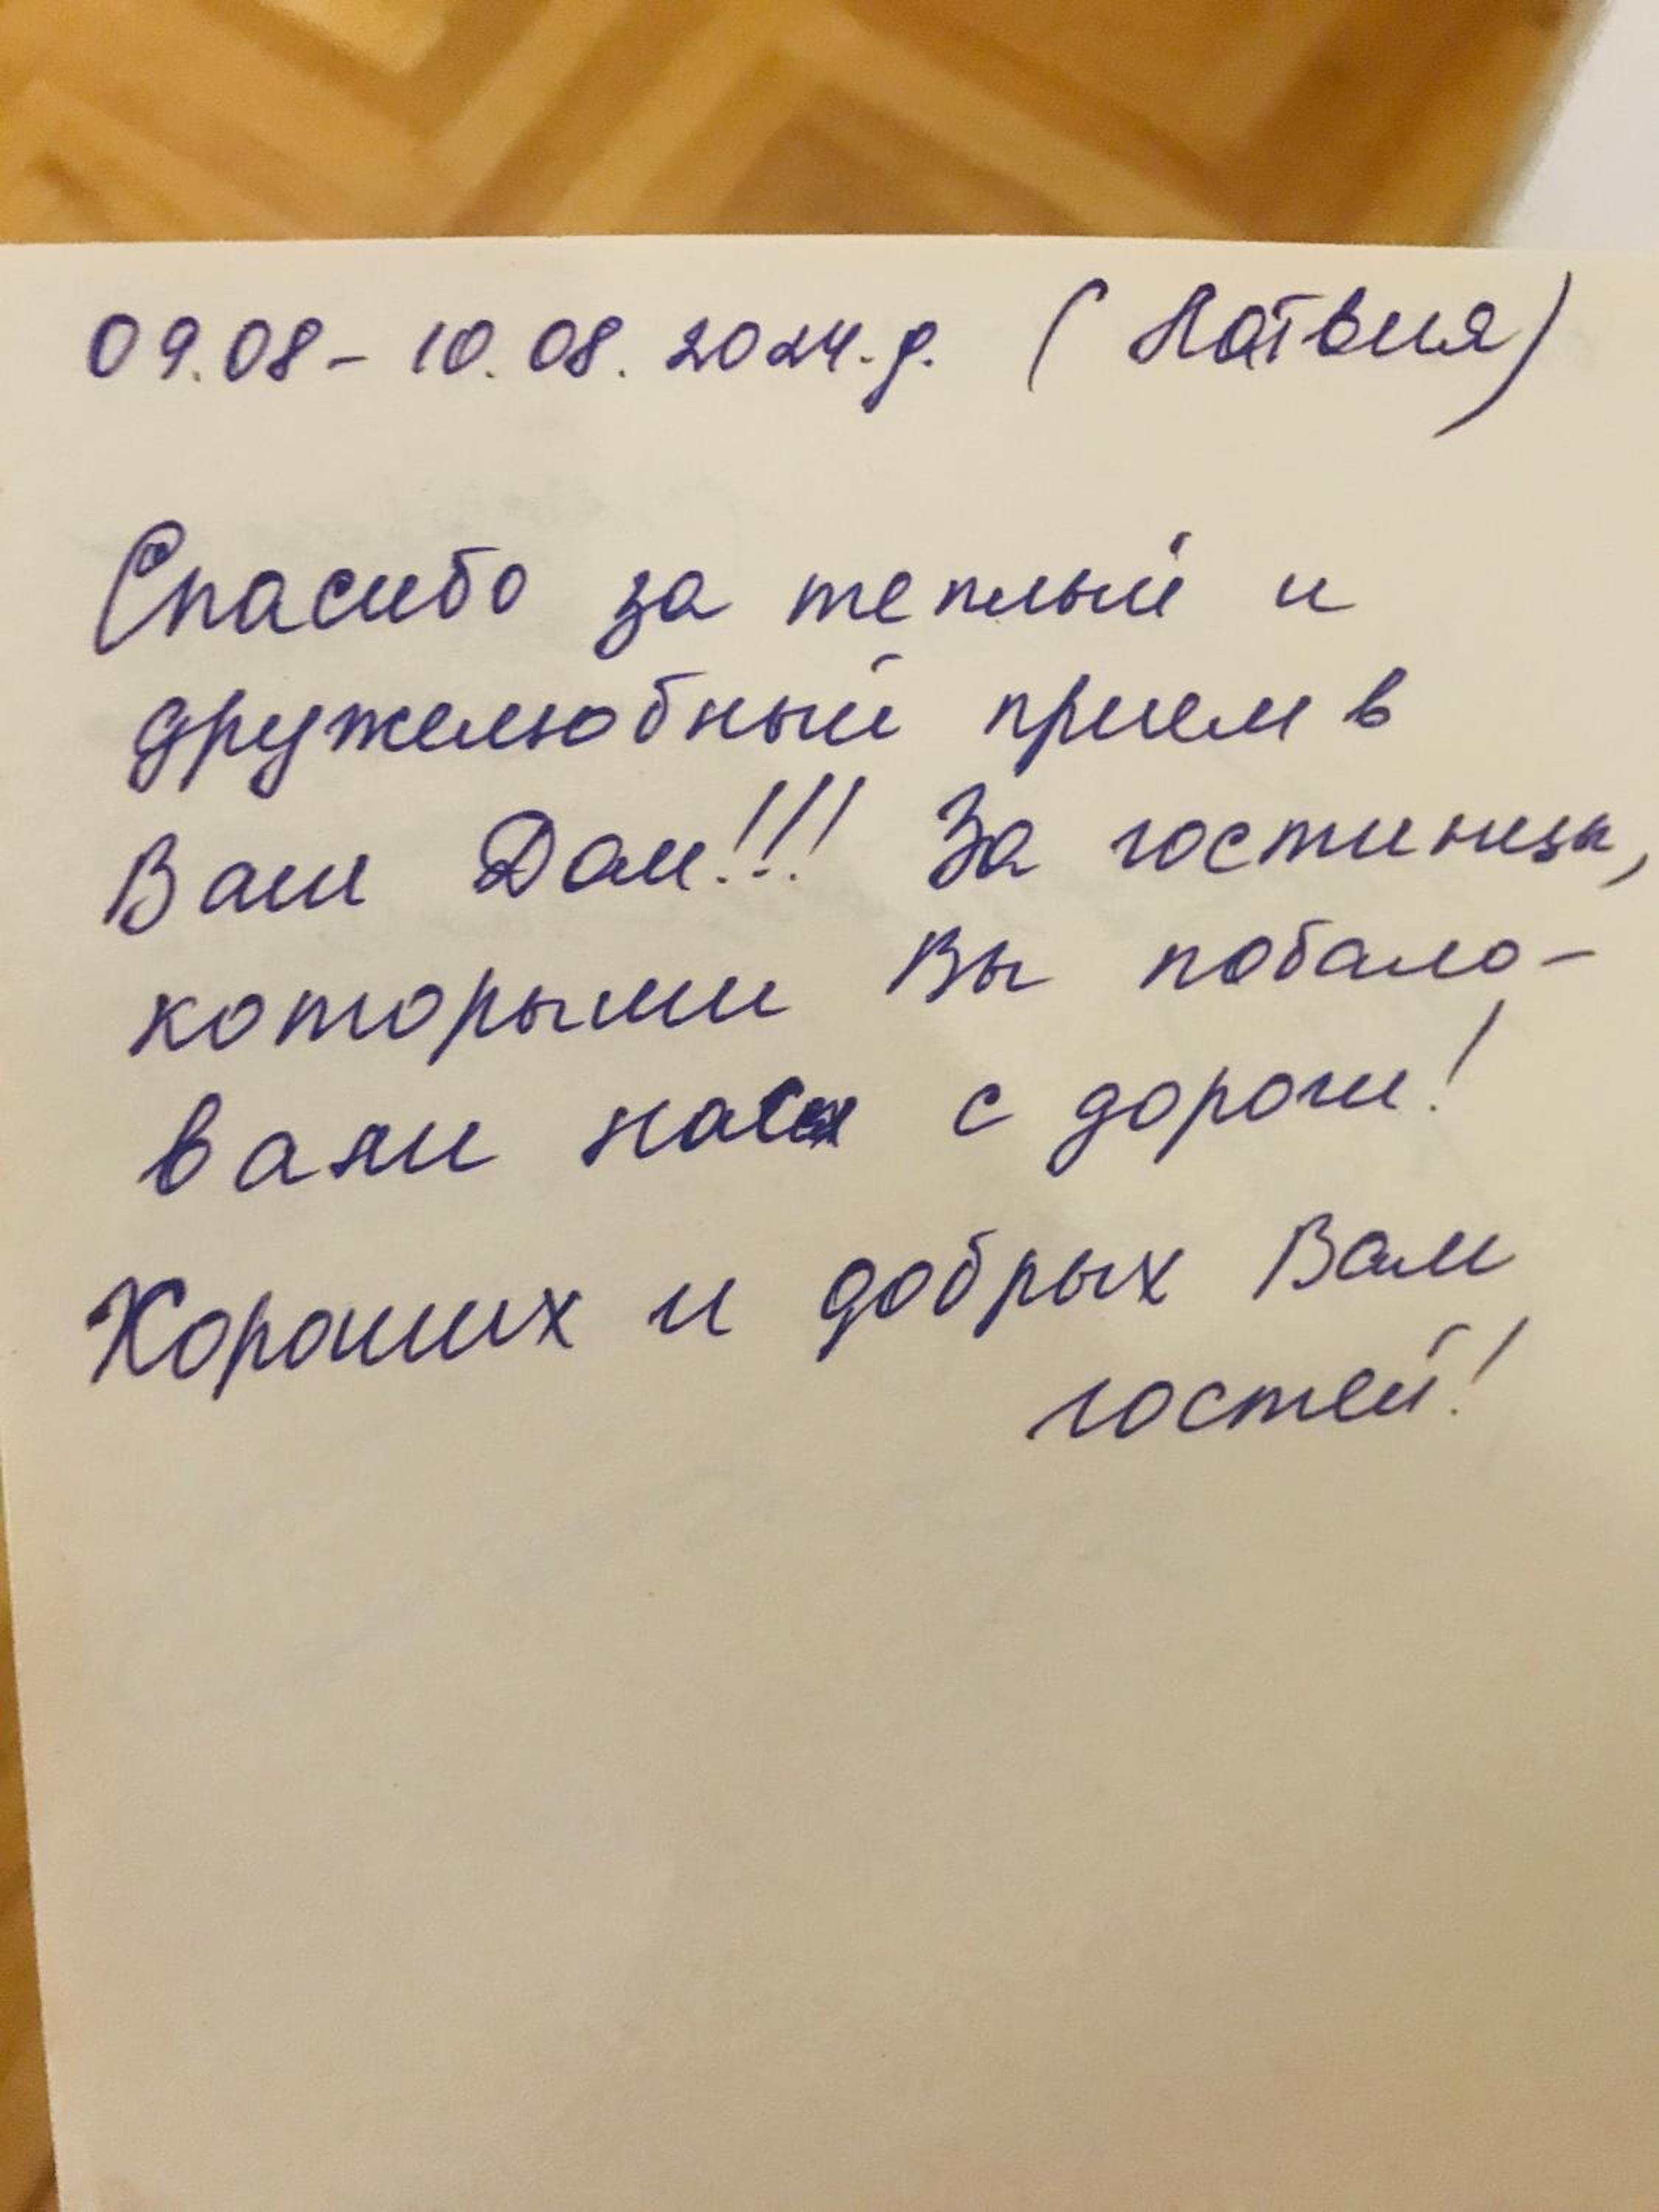 09.08 - 10.08.2024.г. (Латвия)
Спасибо за теплый и
дружелюбный прием в
Ваш Дом!!! За гостинцы,
которыми Вы побало-
вали нас с дороги!
Хороших и добрых Вам
гостей!